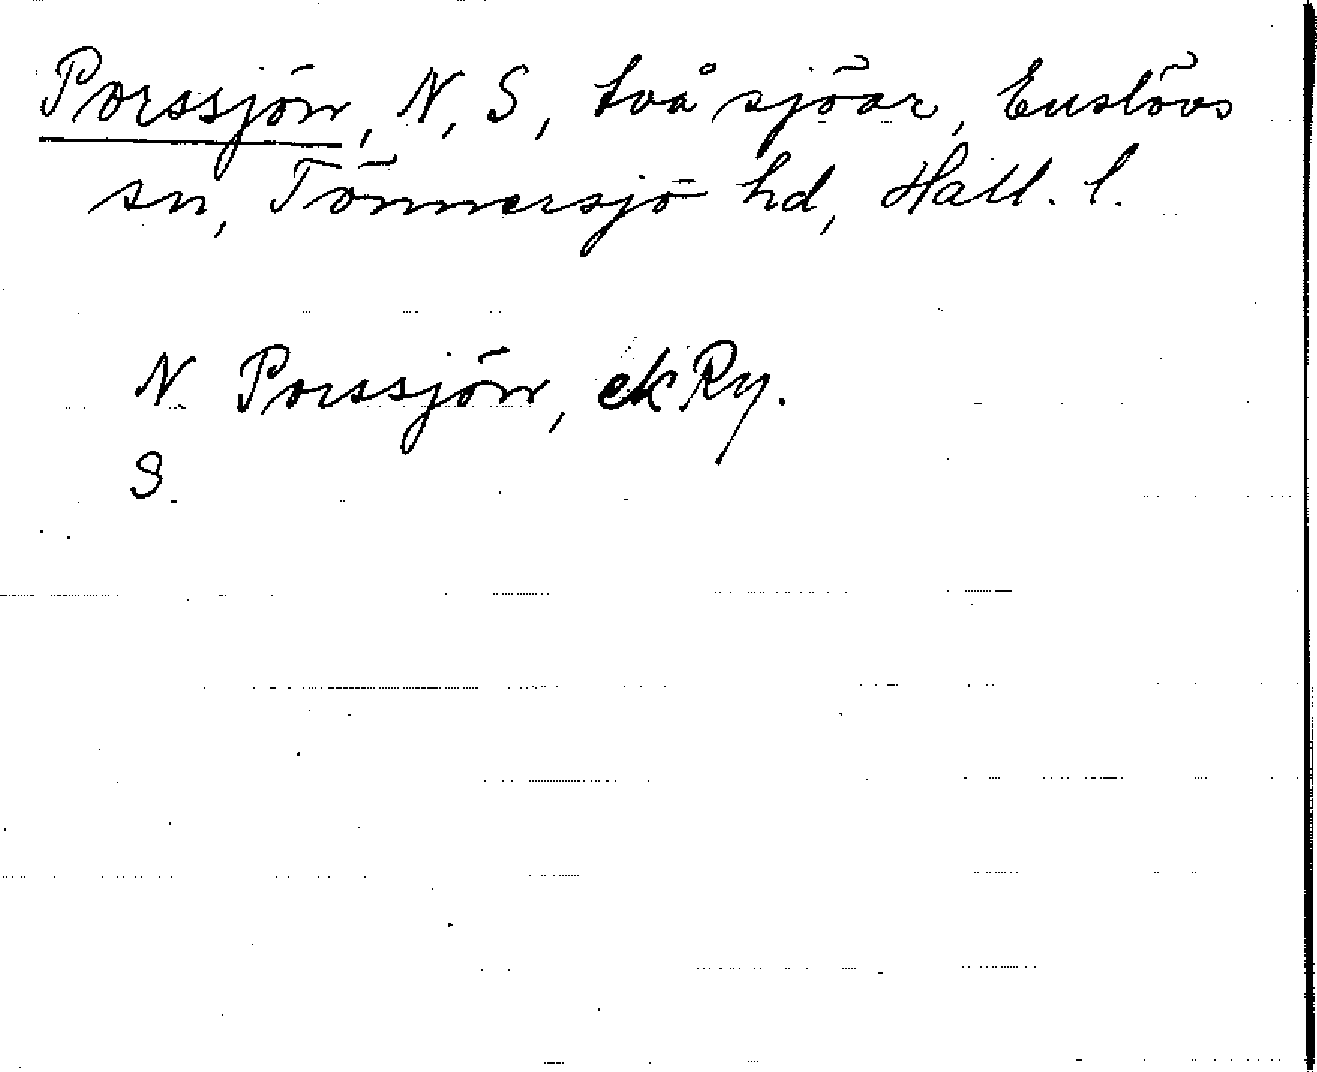 Porssjön, N, S, två sjöar, Enslövs
sn, Tönnersjö hd, Hall. l.
N Porssjön, ekRy.
S.